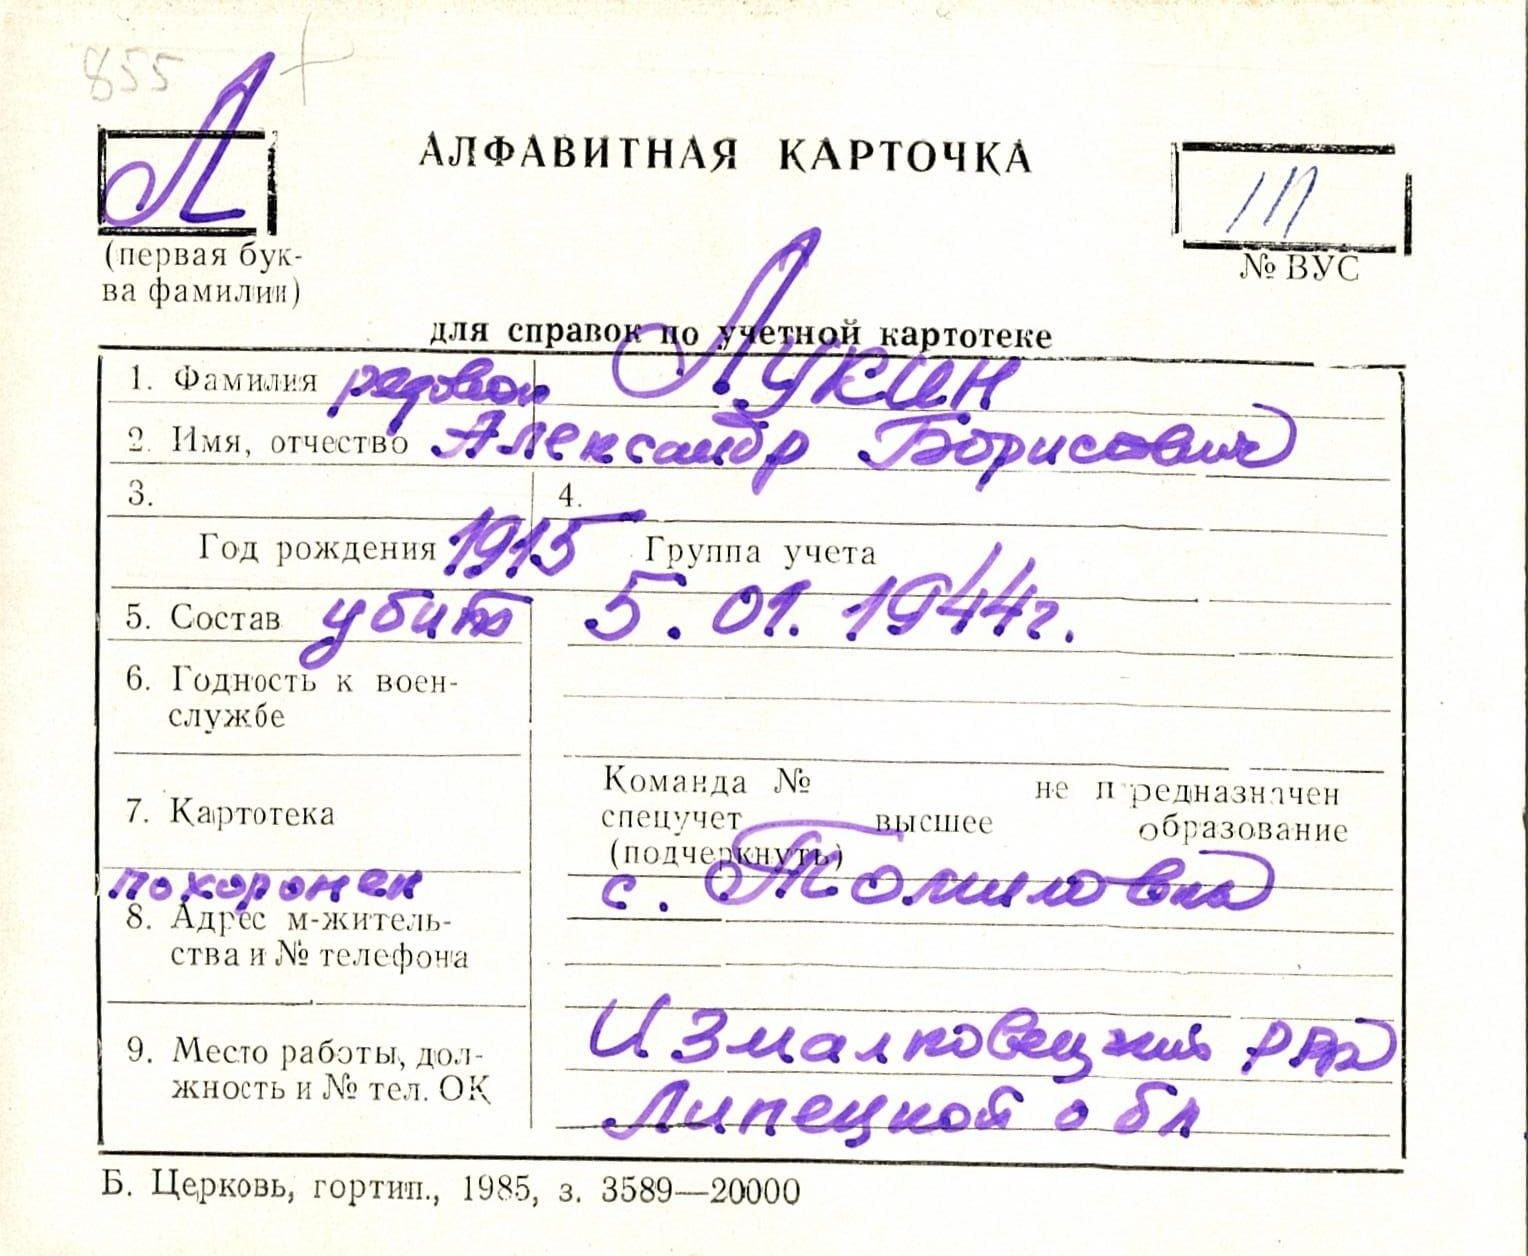 855 +
Л
АЛФАВИТНАЯ КАРТОЧКА
(первая бук-
ва фамилии)
№ ВУС
для справок по учетной картотеке
1. Фамилия рядовой Лукин
2. Имя, отчество Александр Борисович
3. 4.
Год рождения 1915 Группа учета
5. Состав убит 5.01.1944г.
6. Годность к воен-
службе
Команда № не предназначен
7. Картотека спецучет высшее образование
(подчеркнуть)
похоронен с. Томиловка
8. Адрес м-житель-
ства и № телефона
Измалковецкий р
9. Место работы, дол-
жность и № тел. ОК
Липецкой обл
Б. Церковь, гортип., 1985, з. 3589—20000